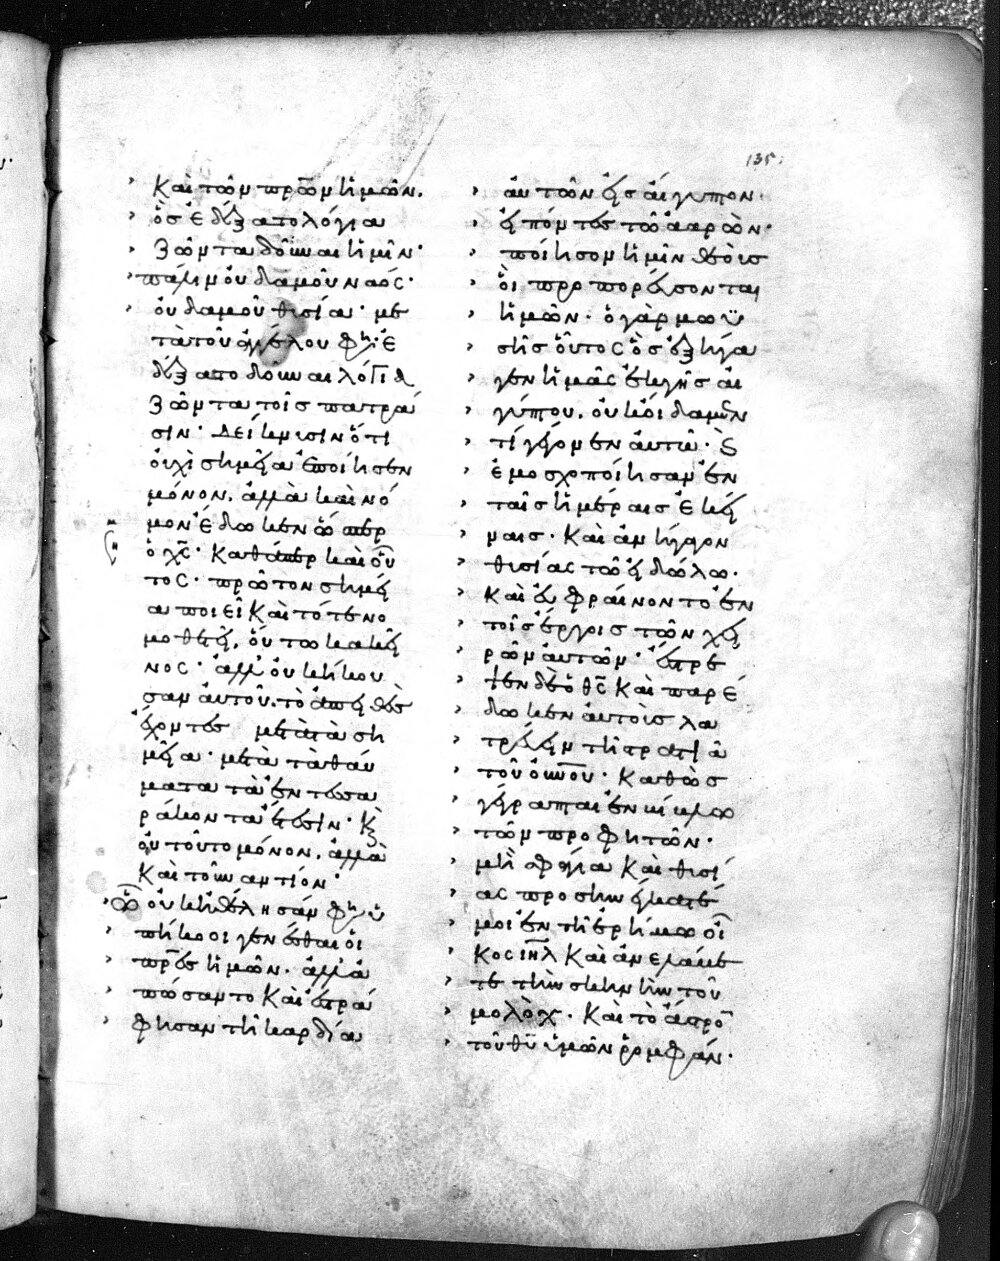 135
καὶ τῶν πρω̅ν ἡμῶν.
ὃς ἐδέξατο λόγια
ζῶντα δοῦναι ἡμῖν·
πάλιν οὐδαμοῦ ναός·
οὐδαμοῦ θυσία· με
τὰ τοῦ ἀγγέλου φη· ἐ
δέξατο δοῦναι λόγια
ζῶντα τοῖς πατρά
σιν· δείκνυσιν ὅτι
οὐχὶ σημεῖα ἐποίησεν
μόνον. ἀλλὰ καὶ νό
μον ἔδωκεν ὥσπερ
ὁ χς· καθάπερ καὶ οὗ
τος· πρῶτον σημεῖ
α ποιεῖ καὶ τότε νο
μοθετεῖ, οὕτω κἀκεῖ
νος· ἀλλ' οὐκ ἤκου
σαν αὐτοῦ. τὸ ἀπειθὲς
ἔχοντες μετὰ τὰ ση
μεῖα· μετὰ τὰ θαύ
ματα τὰ ἐν τεσσα
ράκοντα ἔτεσιν· καὶ
οὐ τοῦτο μόνον. ἀλλὰ
καὶ τοὐναντίον·
ᾧ οὐκ ἠθέλησαν φη ὑ
πήκοοι γενέσθαι οἱ
πρες ἡμῶν. ἀλλ' ἀ
πώσαντο καὶ ἐστρά
φησαν τῇ καρδίᾳ
αὐτῶν εἰς αἴγυπτον·
εἰπόντες τῶ ἀαρών·
ποίησον ἡμῖν θεοὺς
οἳ προπορεύσονται
ἡμῶν. ὁ γὰρ μωϋ
σῆς οὗτος ὃς ἐξήγα
γεν ἡμᾶς ἐκ γῆς αἰ
γύπτου. οὐκ οἴδαμεν
τί γέγονεν αὐτῶ· καὶ
ἐμοσχοποίησαν ἐν
ταῖς ἡμέραις ἐκεί
ναις. καὶ ἀνήγαγον
θυσίας τῶ εἰδώλω.
καὶ εὐφραίνοντο ἐν
τοῖς ἔργοις τῶν χει
ρῶν αὐτῶν· ἔστρε
ψεν δὲ ὁ θς καὶ παρέ
δωκεν αὐτοὺς λα
τρεύειν τῇ στρατιᾷ
τοῦ οὐνου· καθὼς
γέγραπται ἐν βίβλω
τῶν προφητῶν·
μὴ σφάγια καὶ θυσί
ας προσηνέγκατέ
μοι ἐν τῇ ἐρήμω οἶ
κος ιηλ καὶ ἀνελάβε
τε τὴν σκηνὴν τοῦ
μολὸχ. καὶ τὸ ἄστρον
τοῦ θυ ὑμῶν ῥομφάν·